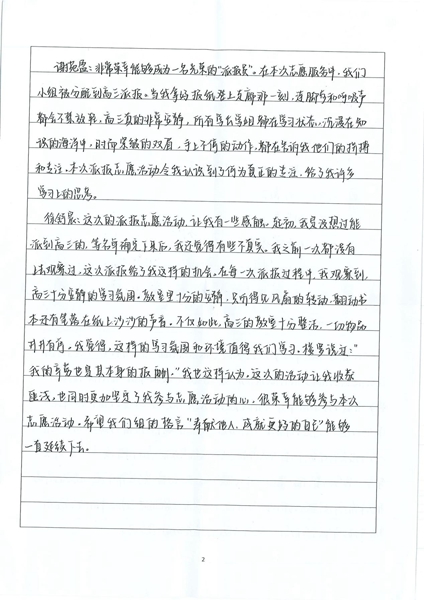 谢苑露：非常荣幸能够成为一名光荣的“派报员”。在本次志愿服务中，我们
小组被分配到高三派报。当我拿好报纸登上走廊那一刻，连脚步和呼吸声
都会不禁放轻，高三真的非常安静，所有学长学姐都在学习状态，沉浸在知
识的海洋中，时而紧皱的双眉，手上不停的动作，都在告诉我他们的拼搏
和专注。本次派报志愿活动令我认识到了何为真正的专注，给了我许多
学习上的思考。
：这次的派报志愿活动，让我有一些感触。起初，我是没想过能
派到高三的，等名单确定下来后，我还觉得有些不真实。我之前一次都没有
上楼观察过，这次派报给了我这样的机会。在每一次派报过程中，我观察到，
高三十分安静的学习氛围。教室里十分的安静，只听得见风扇的转动，翻动书
本还有笔落在纸上沙沙的声音。不仅如此，高三的教室十分整洁，一切物品
井井有序。我觉得，这样的学习氛围和环境值得我们学习。楼里说过：“
我的幸福也是其本身的报酬。”我也这样认为。这次的活动让我收获
匪浅，也同时更加坚定了我参与志愿活动的心。很荣幸能够参与本次
志愿活动。希望我们组的格言“奉献他人，成就更好的自己”能够
一直延续下去。
2